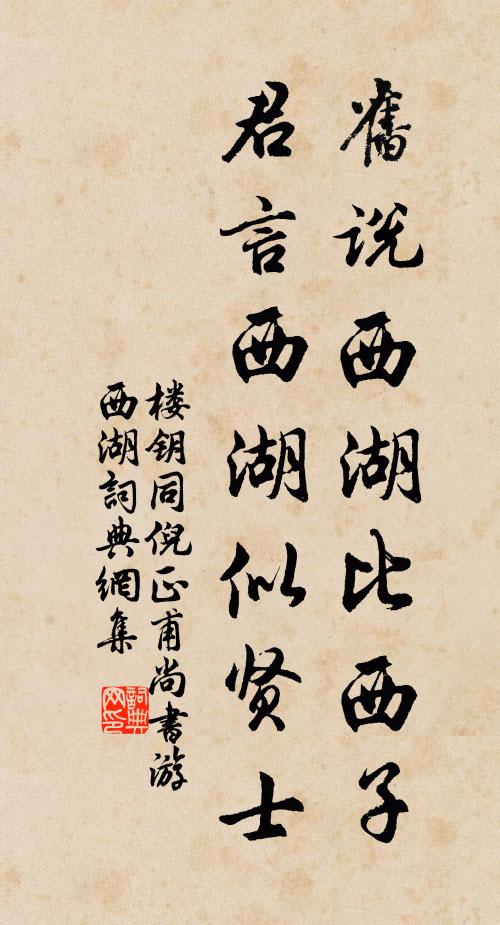 舊说西湖比西子
君言西湖似贤士
楼钥同倪正甫尚書游
西湖詞典網集
詞典网印